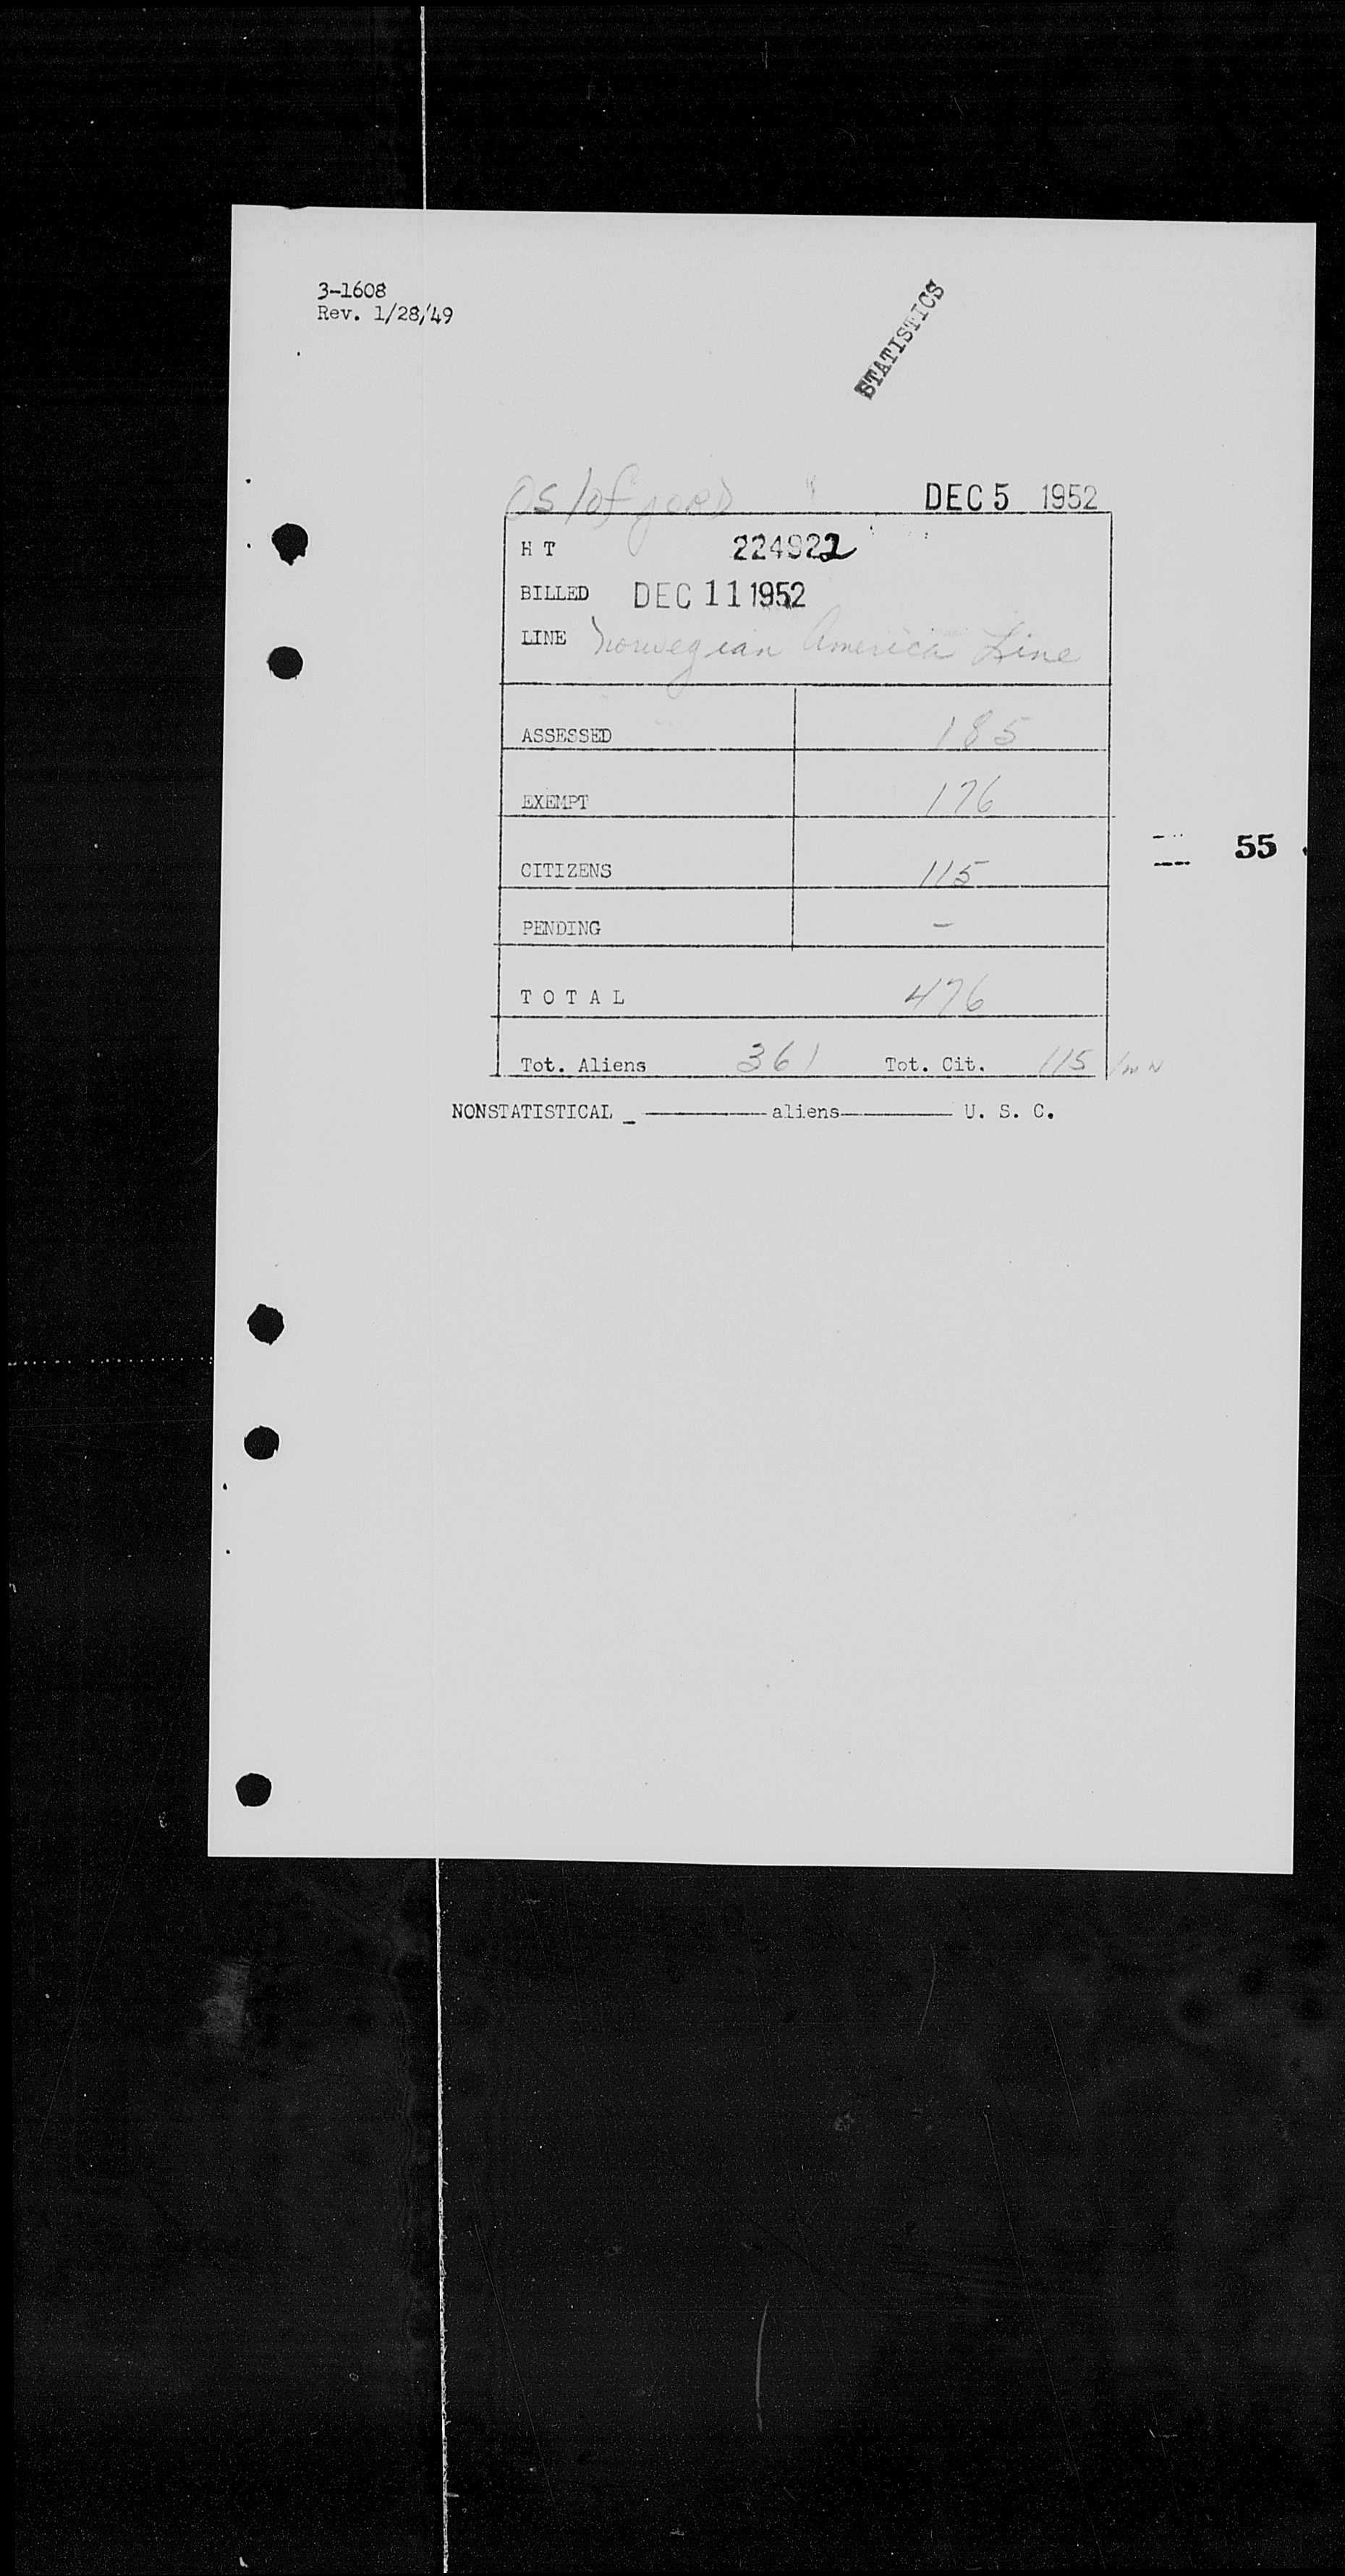 3-1608
Rev. 1/28/49
STATISTICS
Oslofjord DEC 5 1952
H T 224922
BILLED DEC 11 1952
LINE Norwegian America Line
ASSESSED 185
EXEMPT 176
55
CITIZENS 115
PENDING -
T O T A L 476
Tot. Aliens 361 Tot. Cit. 115
NONSTATISTICAL _ ——— aliens ——— U. S. C.